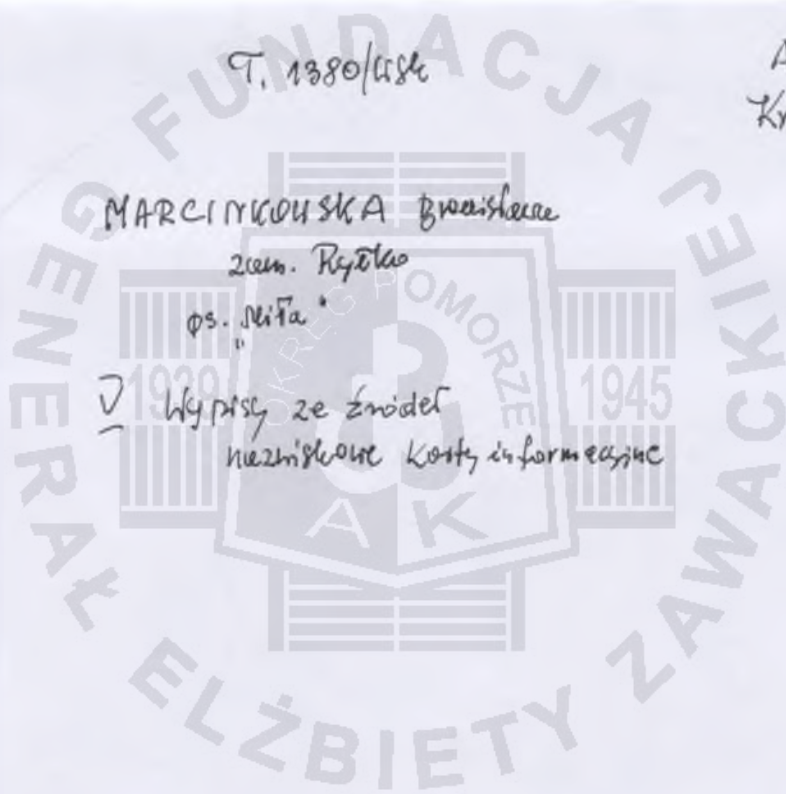 T. 1380/WSK
A
Kr
MARCINKOWSKA Bronisława
zam. Rytko
ps. „Miła"
V Wypisy ze źródeł
nazwiskowe karty informacyjne
FUNDACJA JE
GENERAŁ ELŻBIETY ZAWACKIEJ
OKRĘG POMORZE
1939 1945
AK